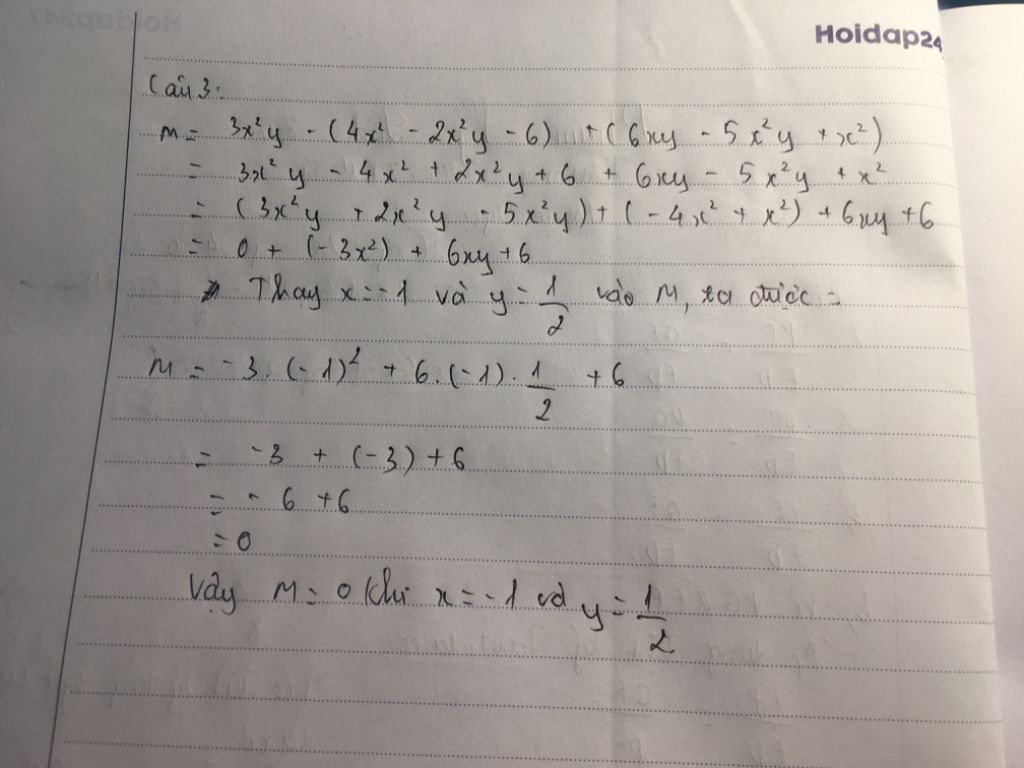 Hoidap24
Câu 3:
M = 3x²y - (4x² - 2x²y - 6) + (6xy - 5x²y + x²)
= 3x²y - 4x² + 2x²y + 6 + 6xy - 5x²y + x²
= (3x²y + 2x²y - 5x²y) + (-4x² + x²) + 6xy + 6
= 0 + (-3x²) + 6xy + 6
Thay x = -1 và y = 1/2 vào M, ta được =
M = -3. (-1)² + 6. (-1). 1/2 + 6
= -3 + (-3) + 6
= - 6 + 6
= 0
Vậy M = 0 khi x = -1 và y = 1/2